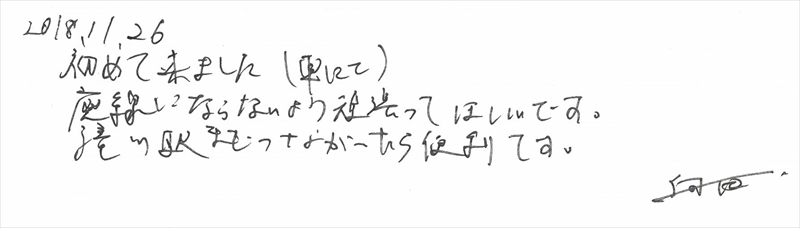 2018.11.26
初めて来ました（車にて）
廃線にならないよう頑張ってほしいです。
駅までつながったら便利です。